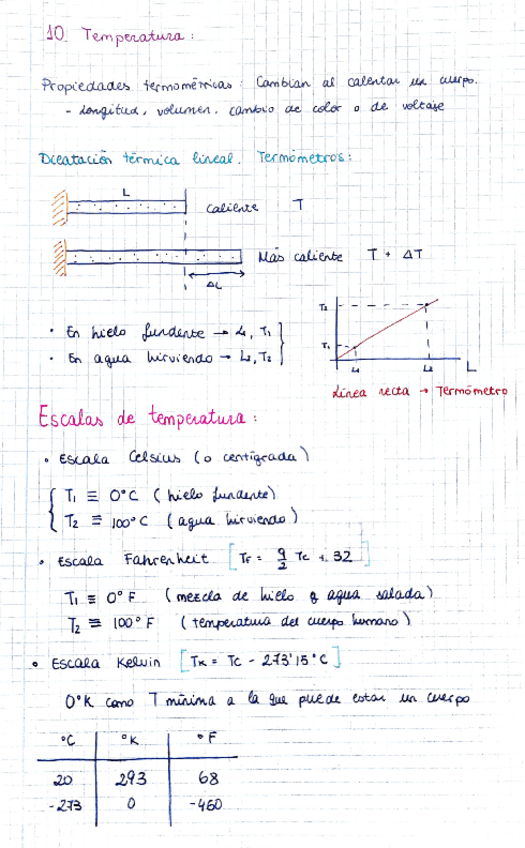 10. Temperatura:
Propiedades termométricas: Cambian al calentar un cuerpo.
- Longitud, volumen, cambio de color o de voltaje
Dilatación térmica lineal. Termómetros:
L
Caliente T
Más caliente T + ΔT
ΔL
· En hielo fundente → L₁, T₁
· En agua hirviendo → L₂, T₂
T₂
T₁
L₁ L₂ L
Línea recta → Termómetro
Escalas de temperatura:
· Escala Celsius (o centigrada)
T₁ ≡ 0°C (hielo fundente)
T₂ ≡ 100°C (agua hirviendo)
· Escala Fahrenheit [TF = 9/2 Tc + 32]
T₁ ≡ 0°F (mezcla de hielo y agua salada)
T₂ ≡ 100°F (temperatura del cuerpo humano)
· Escala Kelvin [TK = TC - 273'15°C]
0°K como T mínima a la que puede estar un cuerpo
°C °K °F
20 293 68
-273 0 -460